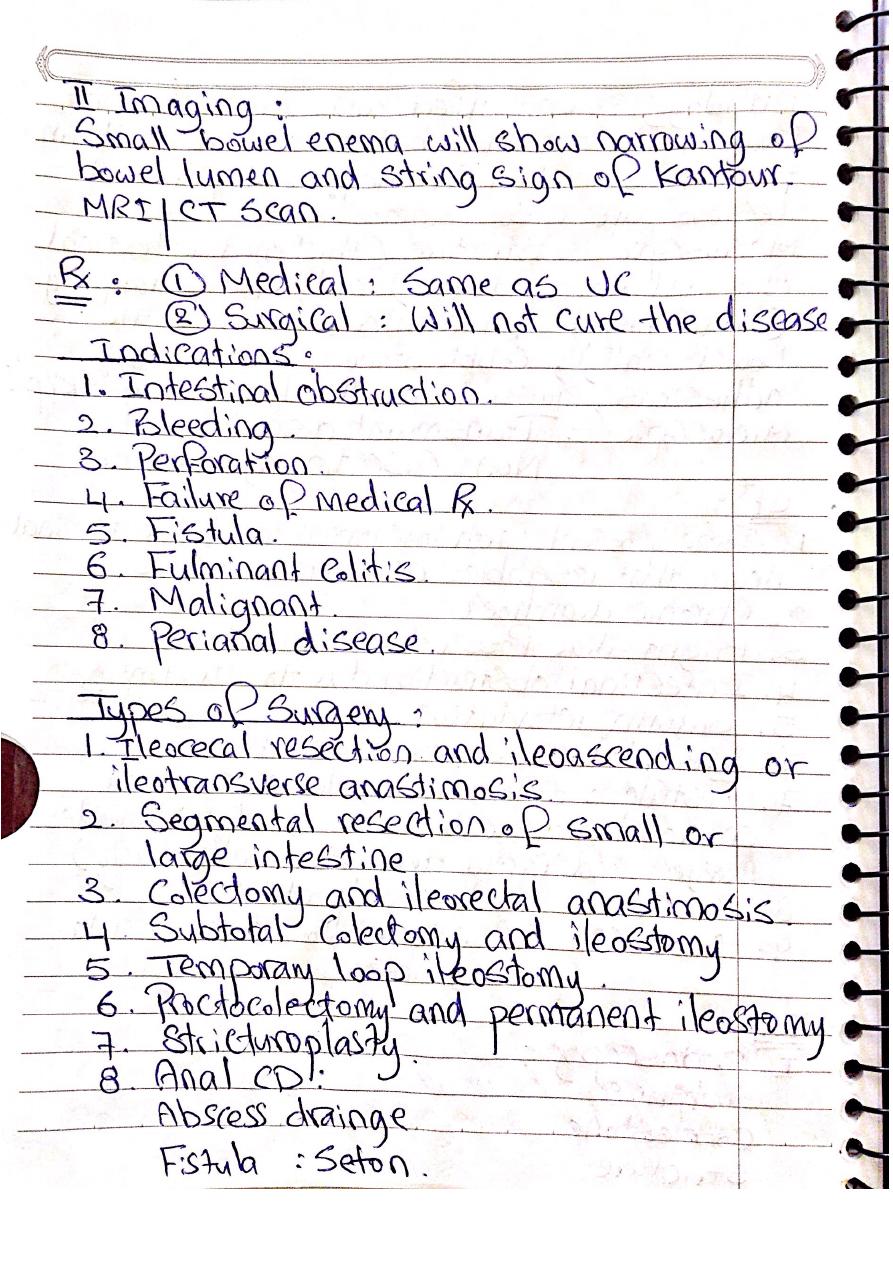 II Imaging :
Small bowel enema will show narrowing of
bowel lumen and string sign of Kantour.
MRI/CT Scan.
Rx : ① Medical : Same as UC
② Surgical : Will not cure the disease.
Indications :
1. Intestinal obstruction.
2. Bleeding.
3. Perforation.
4. Failure of medical Rx.
5. Fistula.
6. Fulminant Colitis.
7. Malignant.
8. Perianal disease.
Types of Surgery :
1. Ileocecal resection and ileoascending or
ileotransverse anastimosis.
2. Segmental resection of small or
large intestine
3. Colectomy and ileorectal anastimosis.
4. Subtotal Colectomy and ileostomy
5. Temporary loop ileostomy.
6. Proctocolectomy and permanent ileostomy
7. Stricturoplasty.
8. Anal CD :
Abscess drainge
Fistula : Seton.